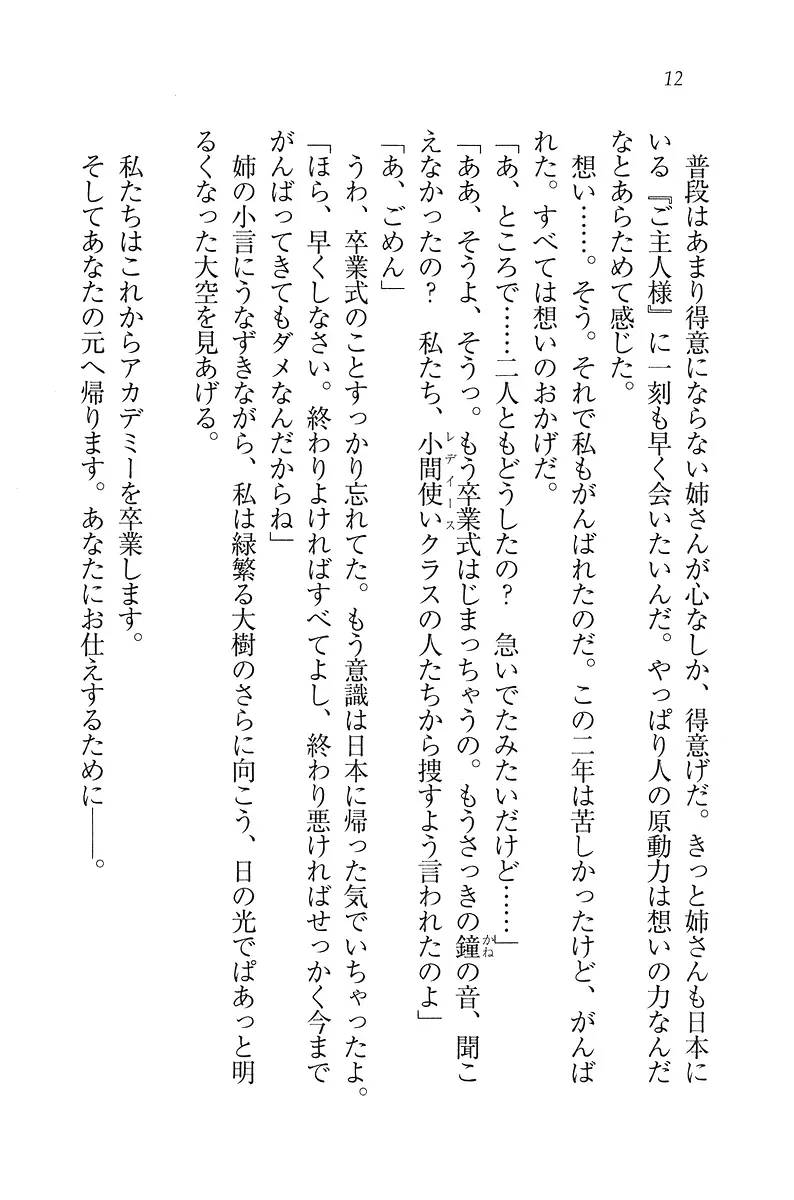 12
普段はあまり得意にならない姉さんが心なしか、得意げだ。きっと姉さんも日本に
いる『ご主人様』に一刻も早く会いたいんだ。やっぱり人の原動力は想いの力なんだ
なとあらためて感じた。
想い……。そう。それで私もがんばれたのだ。この二年は苦しかったけど、がんば
れた。すべては想いのおかげだ。
「あ、ところで……二人ともどうしたの？　急いでたみたいだけど……」
「ああ、そうよ、そうっ。もう卒業式はじまっちゃうの。もうさっきの鐘の音、聞こ
かね
えなかったの？　私たち、小間使いクラスの人たちから捜すよう言われたのよ」
レディース
「あ、ごめん」
うわ、卒業式のことすっかり忘れてた。もう意識は日本に帰った気でいちゃったよ。
「ほら、早くしなさい。終わりよければすべてよし、終わり悪ければせっかく今まで
がんばってきてもダメなんだからね」
姉の小言にうなずきながら、私は緑繁る大樹のさらに向こう、日の光でぱあっと明
るくなった大空を見あげる。
私たちはこれからアカデミーを卒業します。
そしてあなたの元へ帰ります。あなたにお仕えするために――。